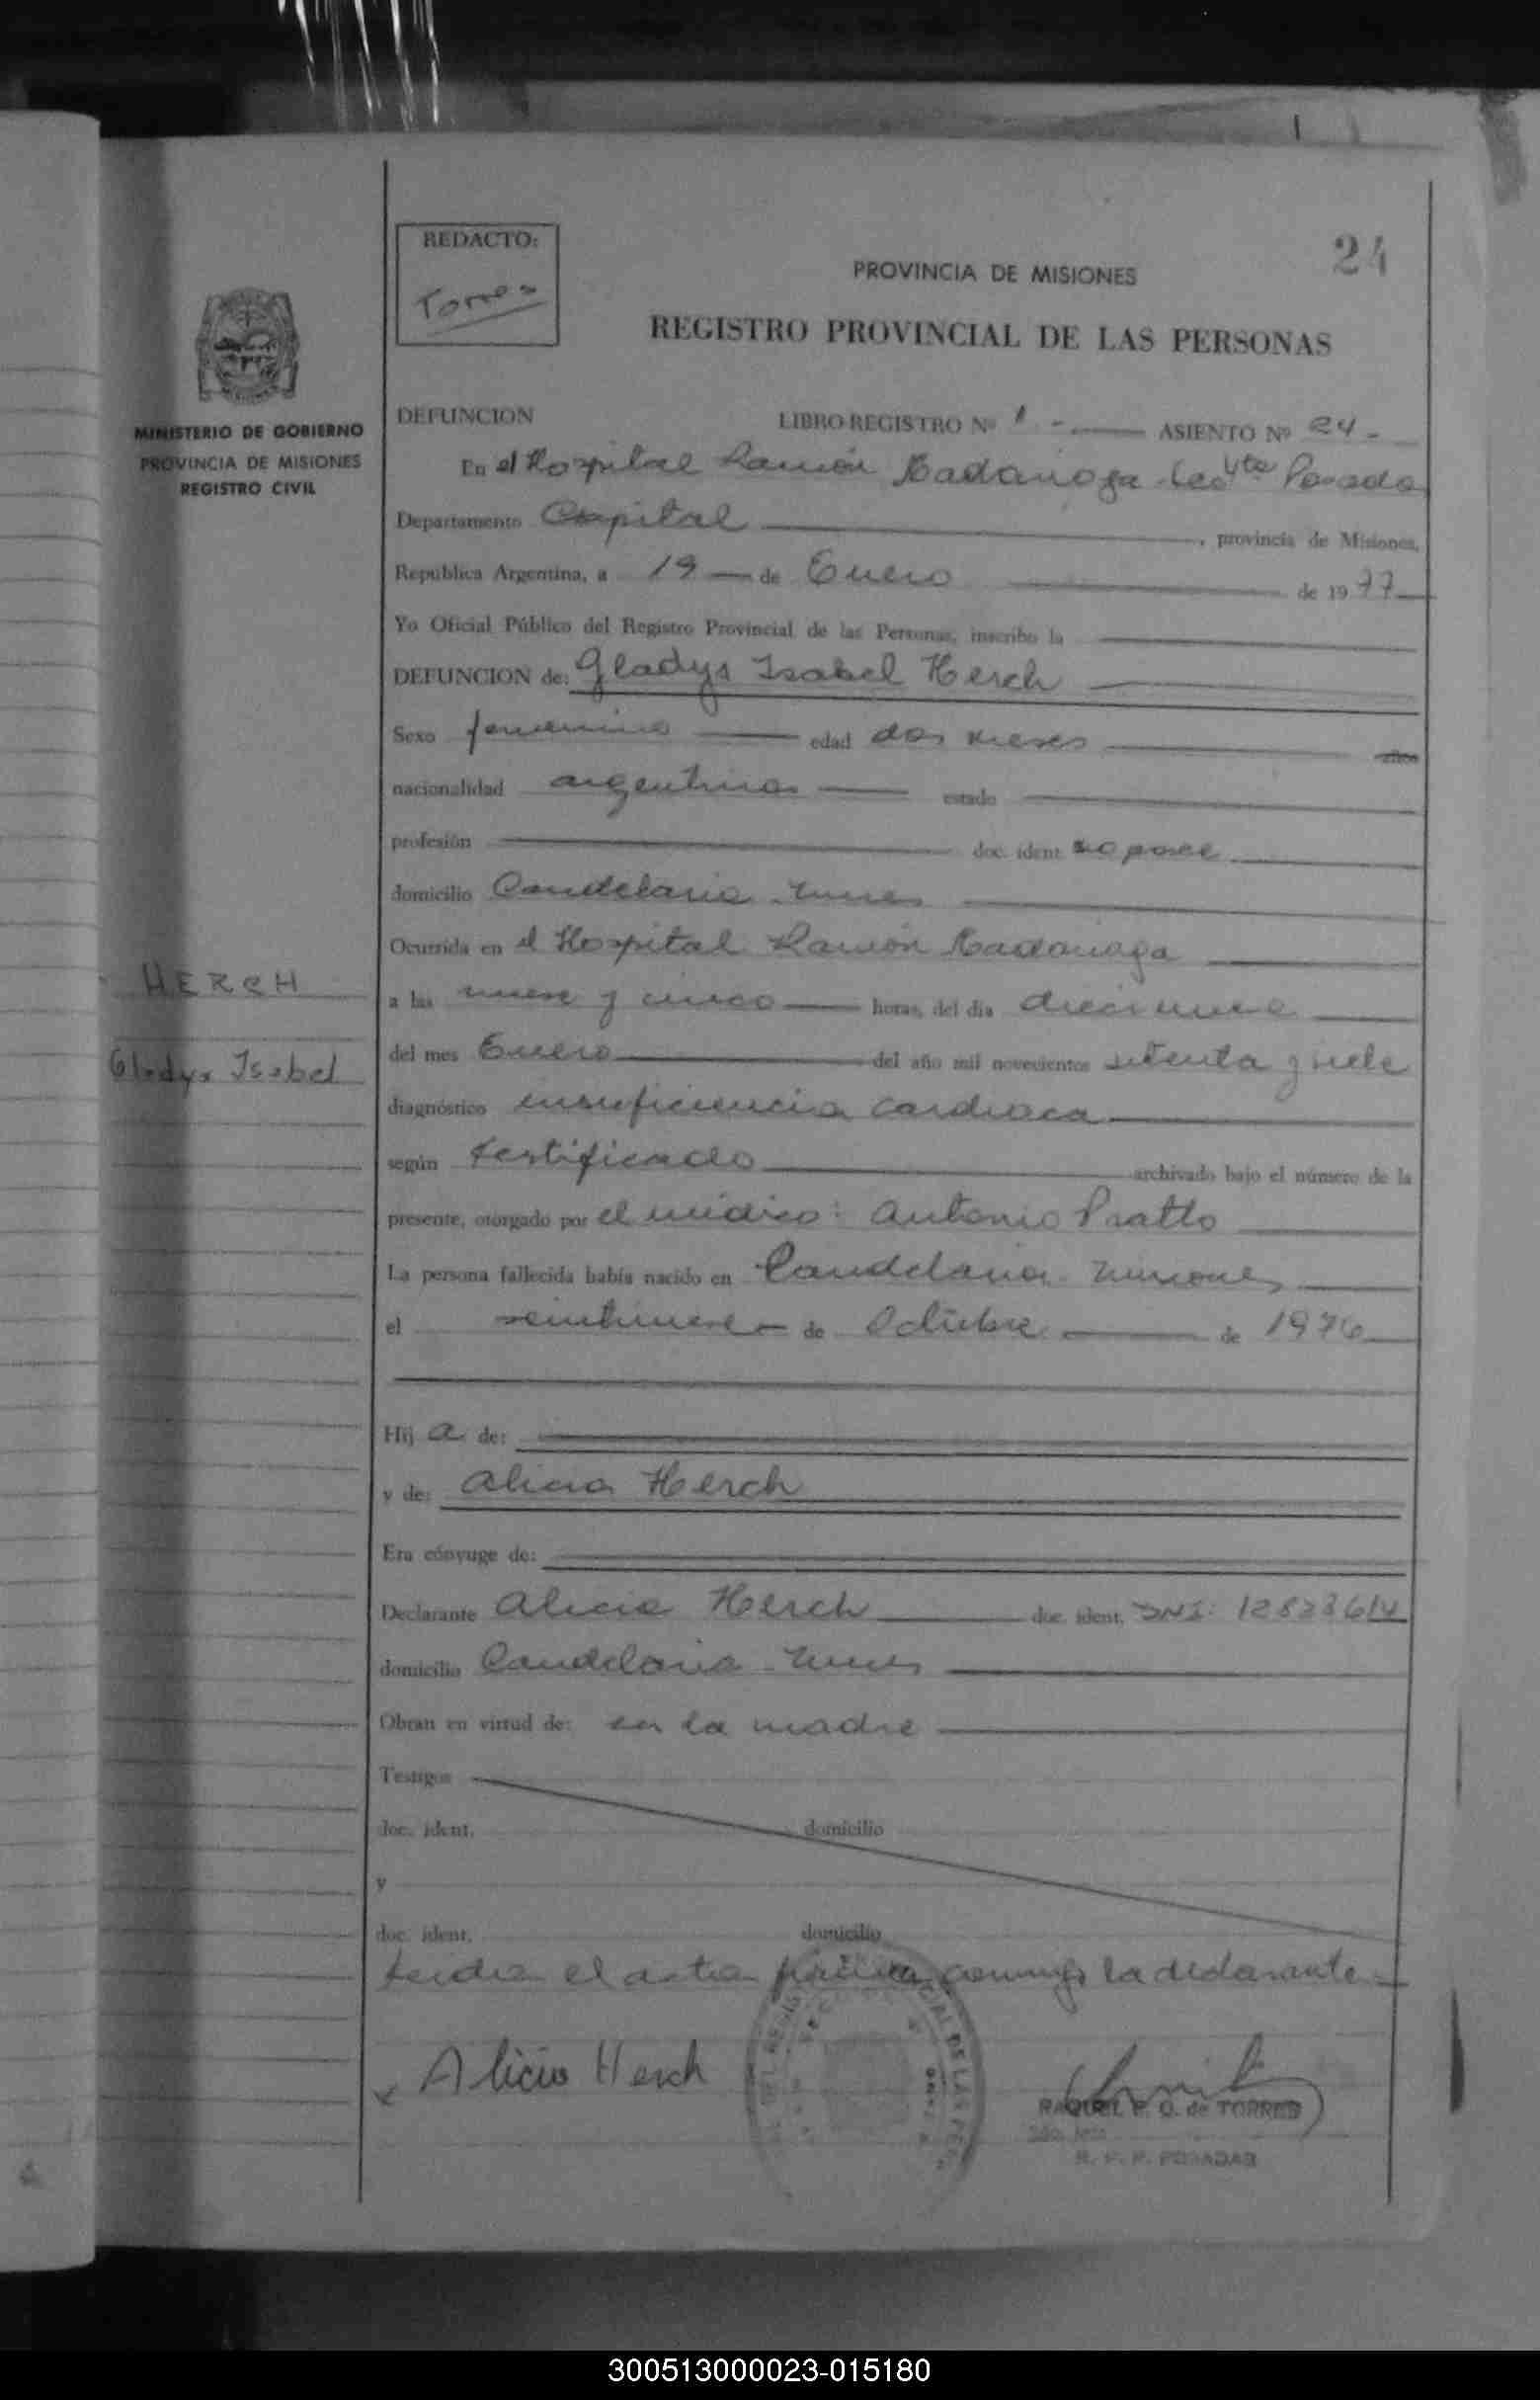 24
REDACTO:
Torres
PROVINCIA DE MISIONES
REGISTRO PROVINCIAL DE LAS PERSONAS
MINISTERIO DE GOBIERNO
PROVINCIA DE MISIONES
REGISTRO CIVIL
DEFUNCION LIBRO REGISTRO Nº 1 - ASIENTO Nº 24 -
En el Hospital Ramón Madariaga
Departamento Capital , provincia de Misiones,
República Argentina, a 19 de Enero de 1977
Yo Oficial Público del Registro Provincial de las Personas, inscribo la
DEFUNCION de: Gladys Isabel Herch
Sexo femenino edad dos meses años
nacionalidad argentina estado
profesión doc. ident. no posee
domicilio Candelaria
Ocurrida en el Hospital Ramón Madariaga
HERCH
a las nueve y cinco horas, del día diecinueve
Gladys Isabel
del mes Enero del año mil novecientos setenta y siete
diagnóstico insuficiencia cardiaca
según certificado archivado bajo el número de la
presente, otorgado por el médico: Antonio Pratto
La persona fallecida había nacido en Candelaria - Misiones
el veintinueve de Octubre de 1976
Hij a de:
y de: Alicia Herch
Era cónyuge de:
Declarante Alicia Herch doc. ident. DNI: 12828614
domicilio Candelaria
Obran en virtud de: ser la madre
Testigos
doc. ident. domicilio
y
doc. ident. domicilio
Leída el acta firma conmigo la declarante -
Alicia Herch
RAQUEL E. O. de TORRES
R. P. P. POSADAS
300513000023-015180